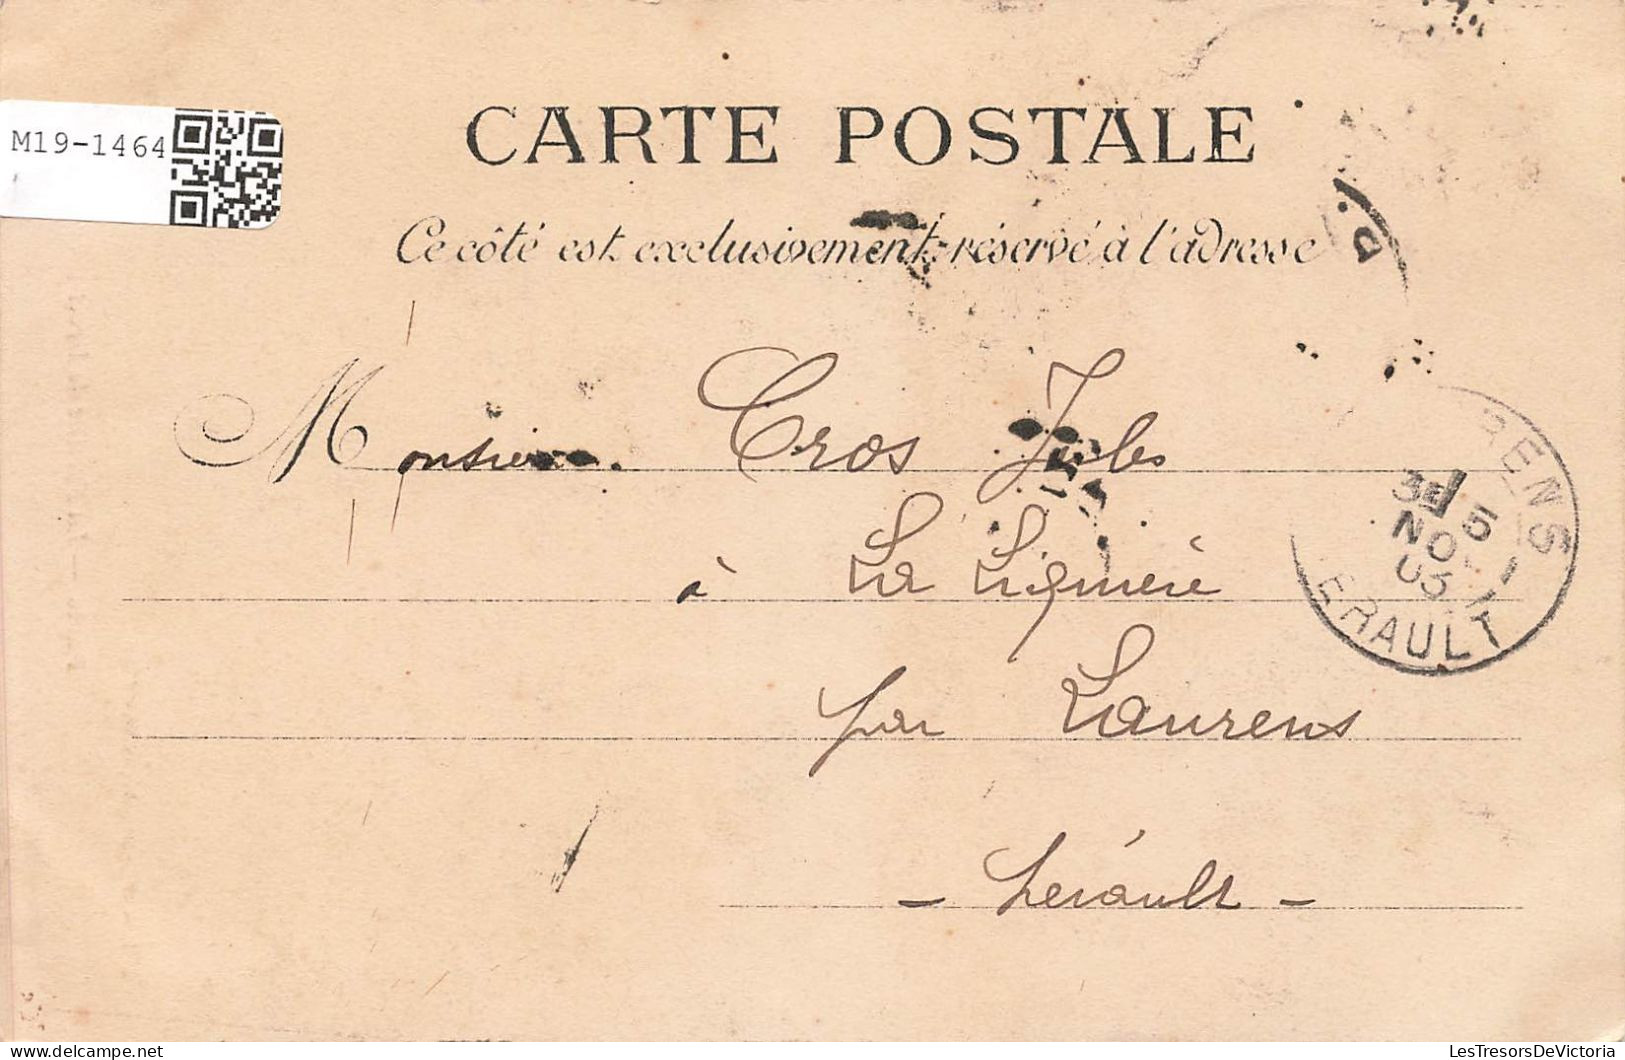 M19-1464
CARTE POSTALE
Ce côté est exclusivement réservé à l'adresse
Monsieur Cros Jules
à La Lignière
par Laurens
- Hérault -
RENS
3E 5
NO
03
ERAULT
LesTresorsDeVictoria